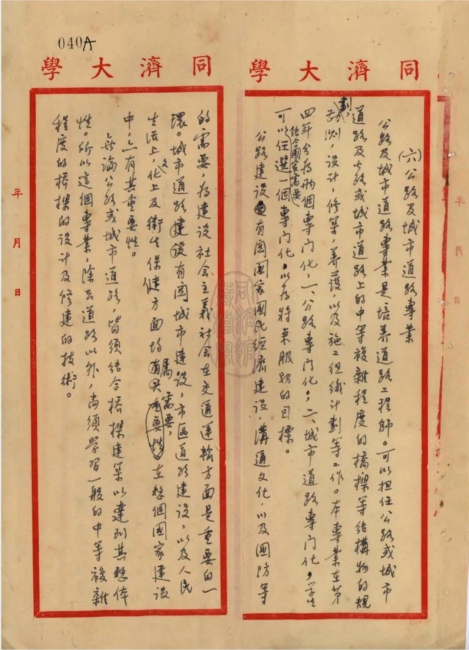 040A
同濟大學
(六)公路及城市道路專業
公路及城市道路專業是培养道路工程師。可以担任公路或城市
道路及公路或城市道路上的中等複雜程度的橋樑等结構物的規
劃，勘测，設计，修筑，养護，以及施工组織计劃等工作。本專業在第
四年分為两個專門化，一、公路專門化；二、城市道路專門化，学生
可以结合國家需要任選一個專門化，以為將来服務的目標。
公路建設有関國家國民经濟建設，溝通文化，以及國防等
同濟大學
的需要，為建設社会主義社会在交通運輸方面是重要的一
環。城市道路建設有関城市建設，市區道路建設，以及人民
生活上文化上及衛生保健方面均属需要，在整個國家建設
中，亦有其重要性。
無論公路或城市道路，皆須结合橋樑建築以達到其整体
性。所以這個專業，除去道路以外，尚須學習一般的中等複雜
程度的橋樑的設计及修建的技術。
年月日